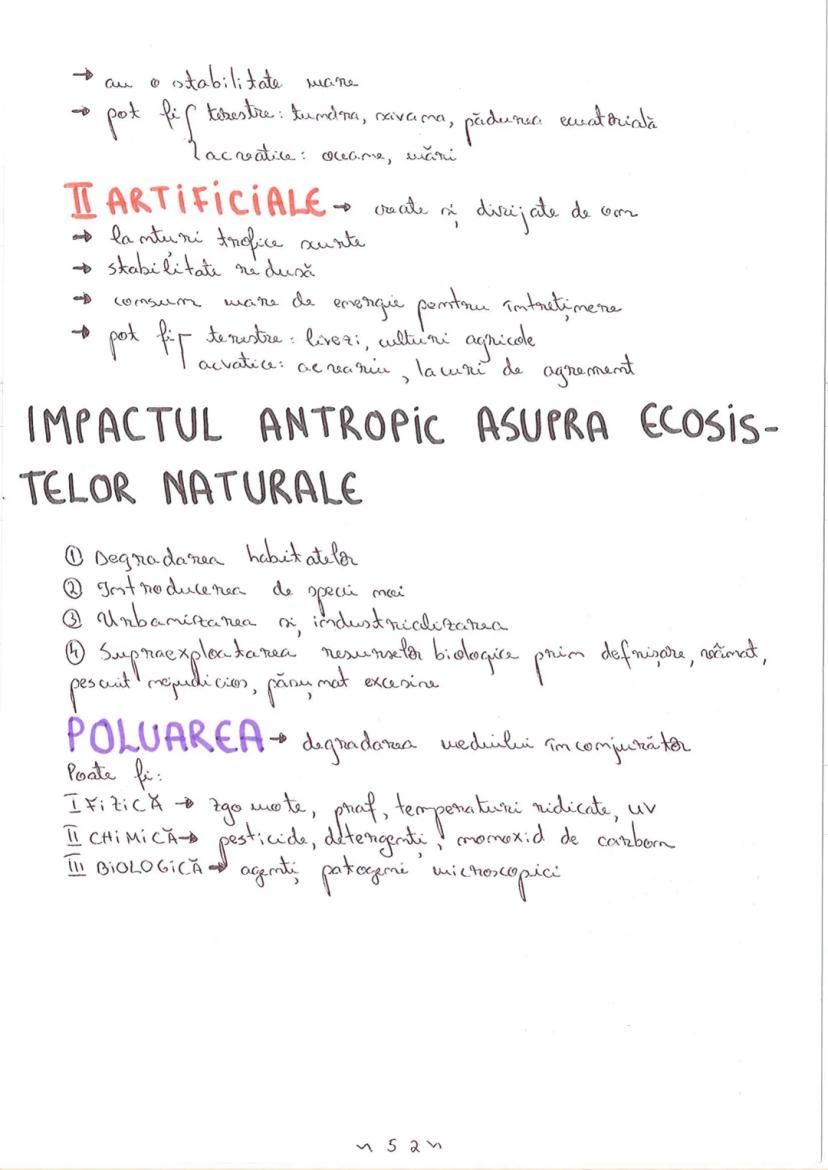 → au o stabilitate mare
→ pot fi { terestre: tundra, savana, pădurea ecuatorială
acvatice: oceane, mări
II ARTIFICIALE → create și dirijate de om
→ lanțuri trofice scurte
→ stabilitate redusă
→ consum mare de energie pentru întreținere
→ pot fi { terestre: livezi, culturi agricole
acvatice: acvariu, lacuri de agrement
IMPACTUL ANTROPIC ASUPRA ECOSIS-
TELOR NATURALE
① Degradarea habitatelor
② Introducerea de specii noi
③ Urbanizarea și industrializarea
④ Supraexploatarea resurselor biologice prin defrișare, vânat,
pescuit nejudicios, pășunat excesive
POLUAREA → degradarea mediului înconjurător
Poate fi:
I FIZICĂ → zgomote, praf, temperaturi ridicate, uv
II CHIMICĂ → pesticide, detergenți, monoxid de carbon
III BIOLOGICĂ → agenți patogeni microscopici
~ 52 ~